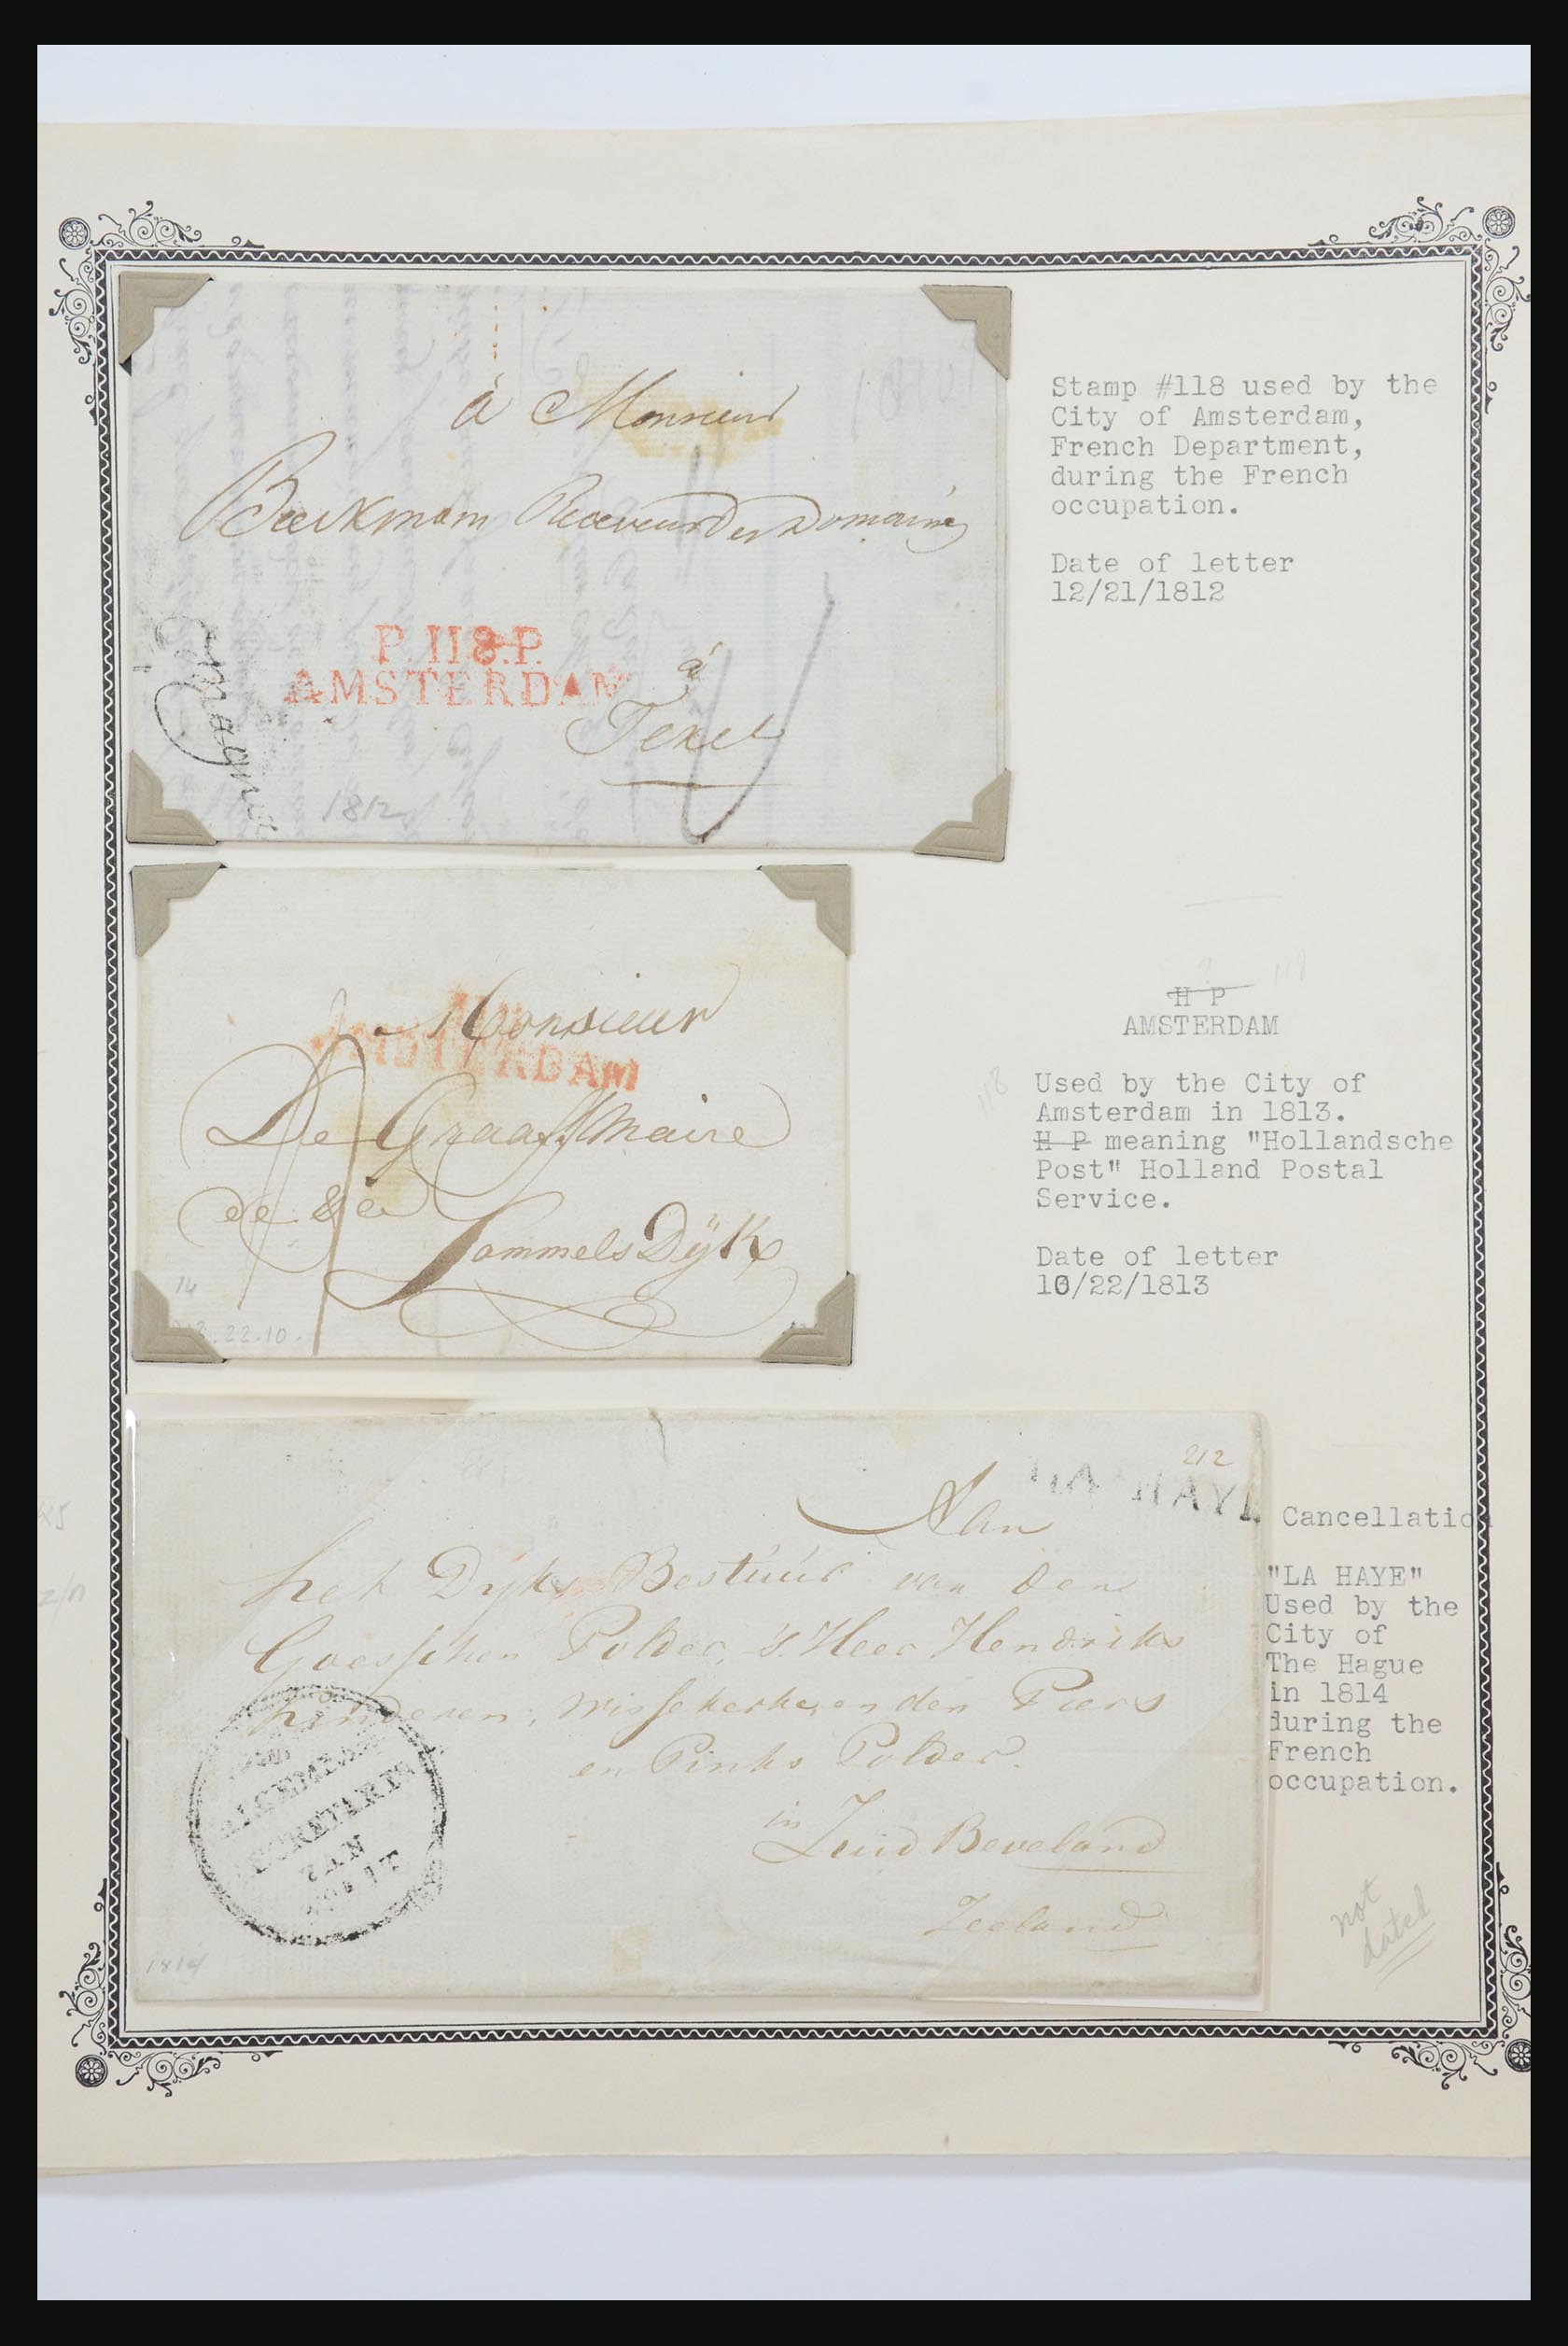 à Monsieur
Beckman Receveur des Domaines
P.118.P.
AMSTERDAM
à
Texel
1812
Stamp #118 used by the
City of Amsterdam,
French Department,
during the French
occupation.
Date of letter
12/21/1812
Monsieur
AMSTERDAM
De Graaff Maire
de &a &a
SommelsDÿk
14
22.10.
H P
AMSTERDAM
118
118
Used by the City of
Amsterdam in 1813.
H P meaning "Hollandsche
Post" Holland Postal
Service.
Date of letter
10/22/1813
212
LA HAYE
Aan
het Dyks Bestuur van den
Goesschen Polder, 's Heer Hendriks
kinderen, Wissekerke, en den Paers
en Pinks Polder.
in
Zuid Beveland
Zeeland
ALGEMEENE
SECRETARIE
VAN
STAAT
1814
Cancellation
"LA HAYE"
Used by the
City of
The Hague
in 1814
during the
French
occupation.
not
dated